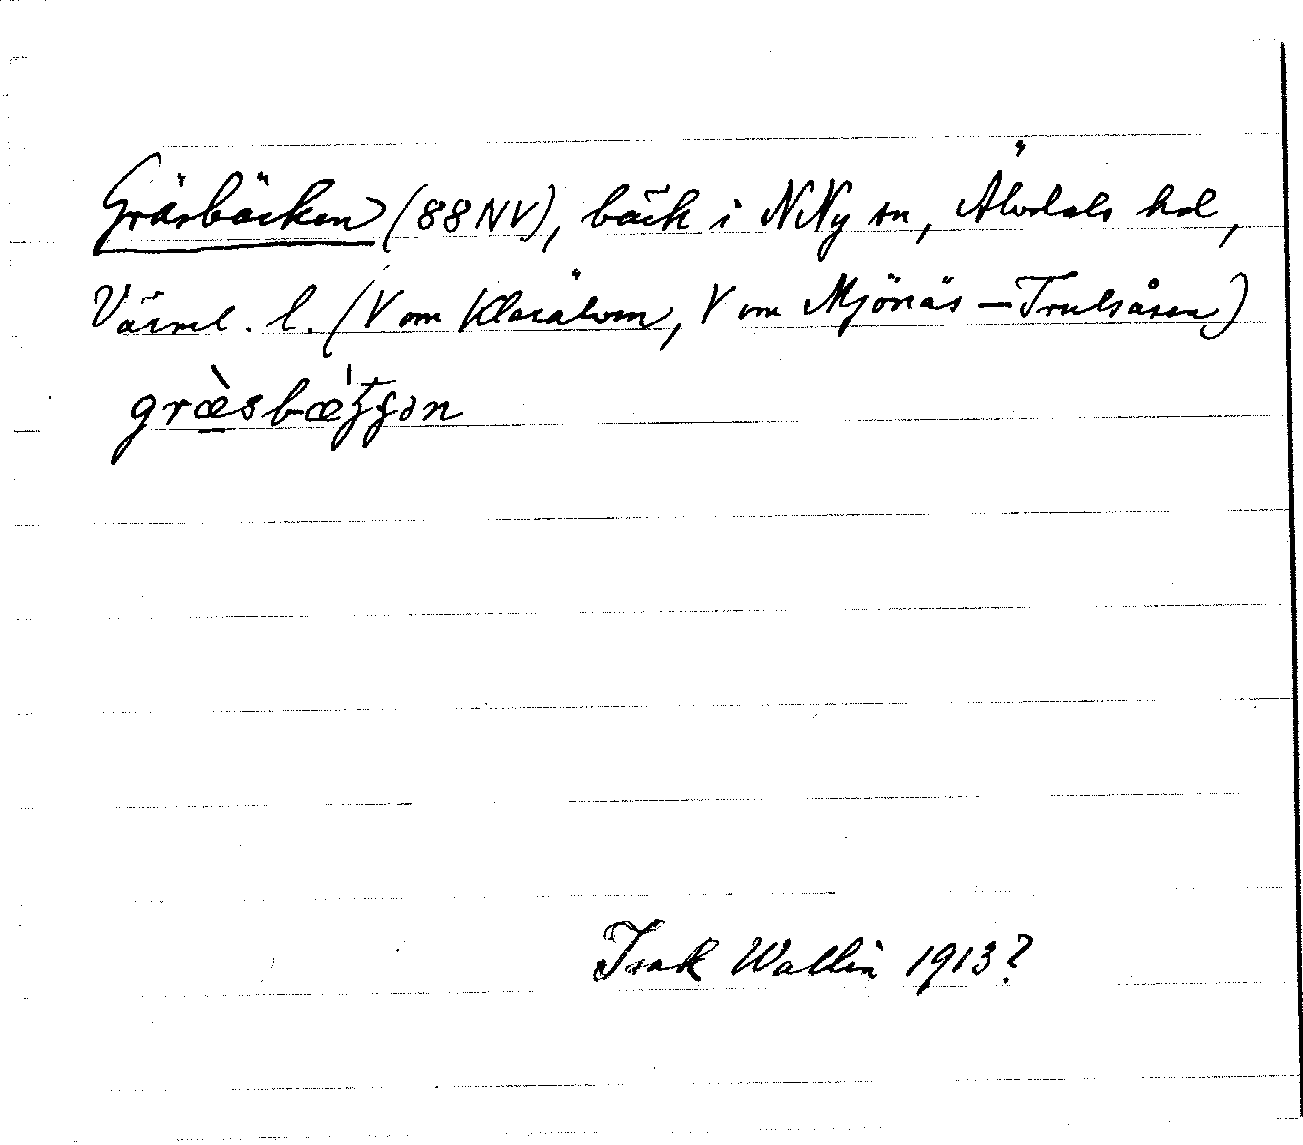 Gräsbäcken (88NV), bäck i NNy sn, Älvdals hd,
Värml. l. (V om Klarälven, V om Mjönäs – Trulsåsen)
græ̀sbæ̍ʒʒən
Isak Wallin 1913?